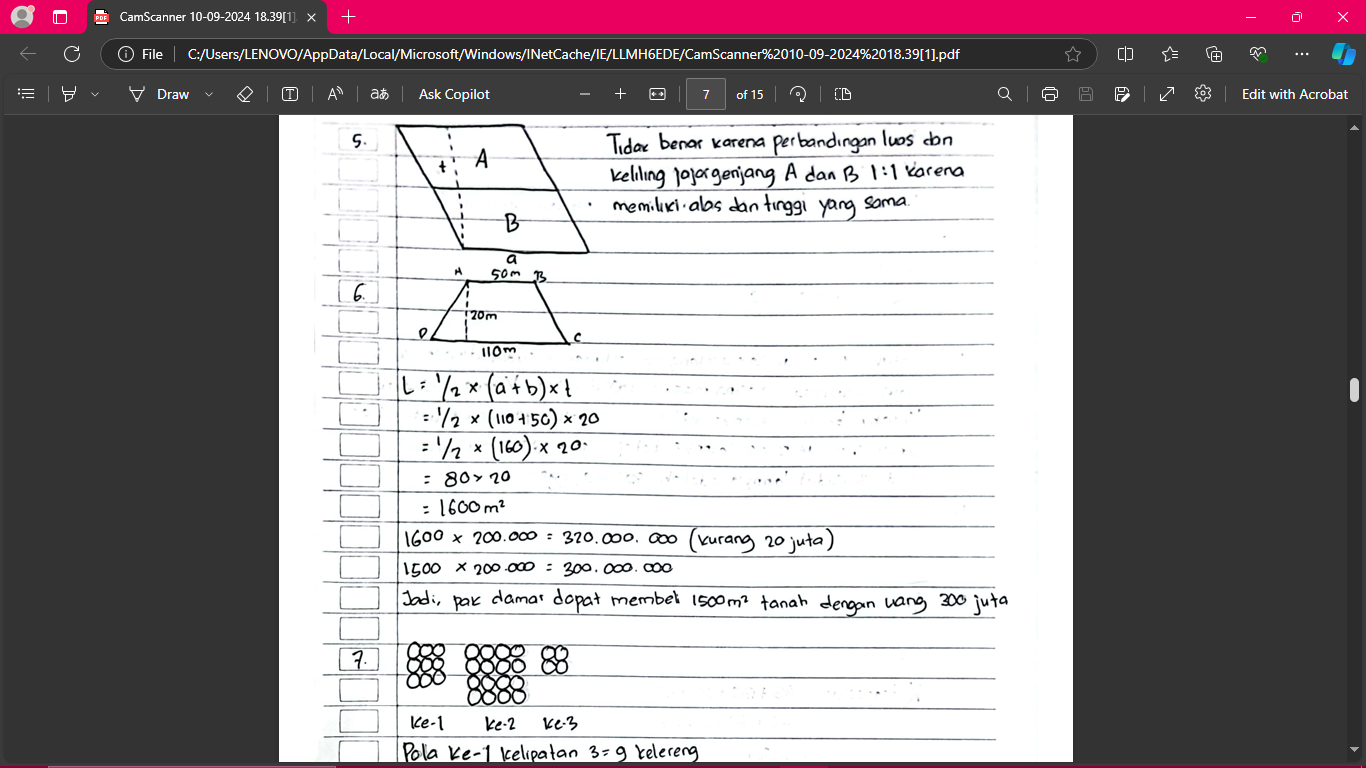 CamScanner 10-09-2024 18.39[1]
File
C:/Users/LENOVO/AppData/Local/Microsoft/Windows/INetCache/IE/LLMH6EDE/CamScanner%2010-09-2024%2018.39[1].pdf
Draw
Ask Copilot
7 of 15
Edit with Acrobat
5.
t A
B
a
Tidak benar karena perbandingan luas dan
keliling jajargenjang A dan B 1:1 karena
memiliki alas dan tinggi yang sama.
6.
A 50m B
20m
D C
110m
L = 1/2 × (a+b) × t
= 1/2 × (110+50) × 20
= 1/2 × (160) × 20
= 80 × 20
= 1600 m²
1600 × 200.000 = 320.000.000 (kurang 20 juta)
1500 × 200.000 = 300.000.000
Jadi, pak damar dapat membeli 1500m² tanah dengan uang 300 juta
7.
ke-1 ke-2 ke-3
Pola ke-1 kelipatan 3 = 9 kelereng